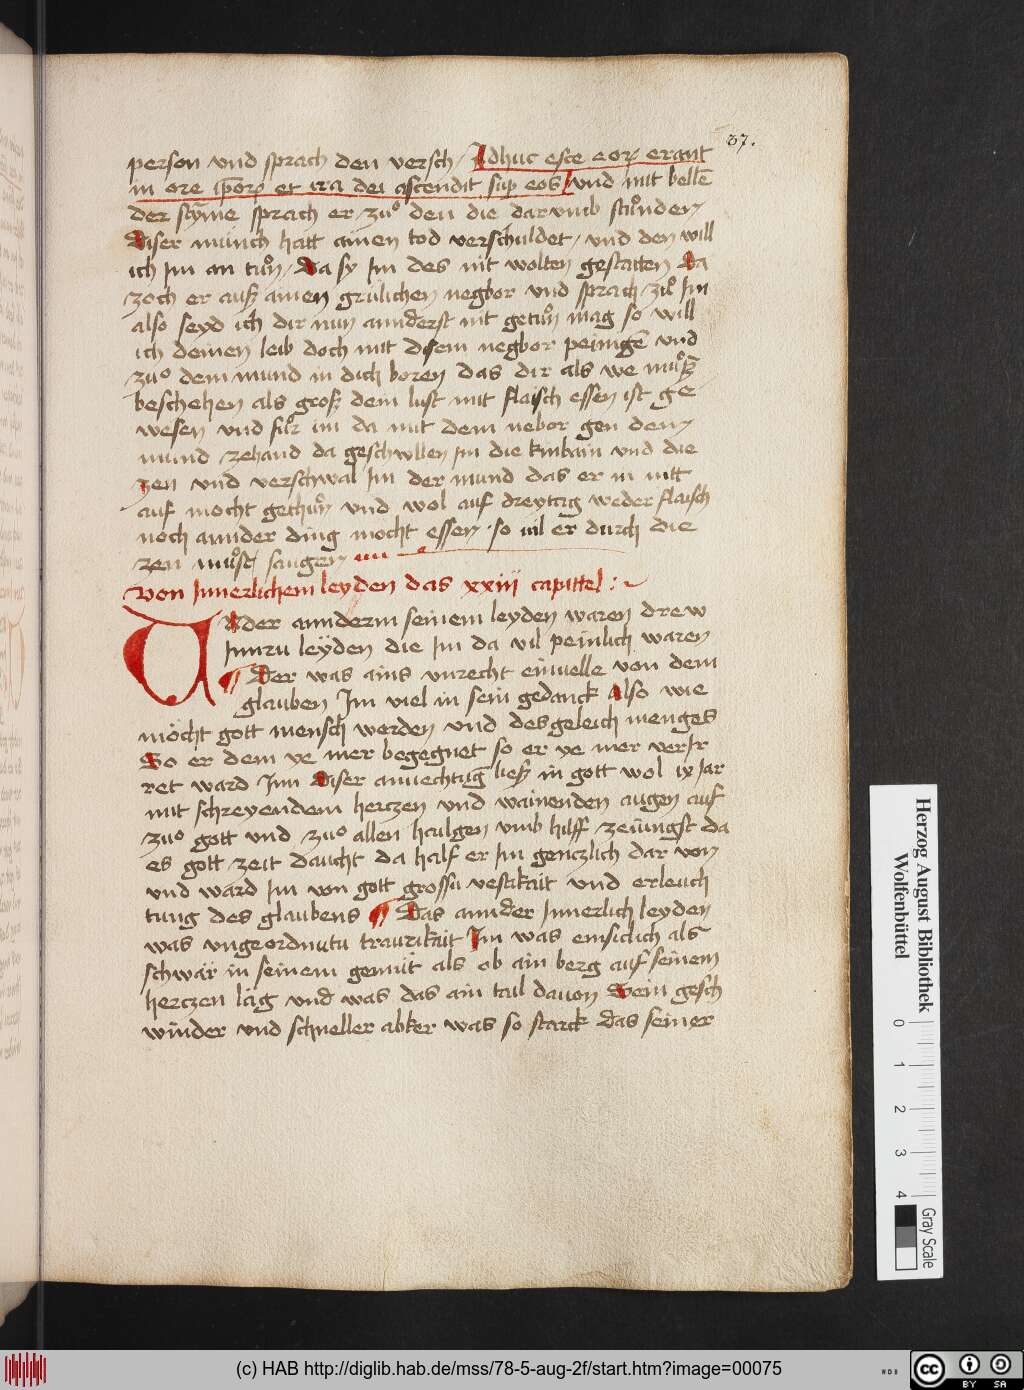 37.
person vnd sprach den versch / Adhuc esce eorꝝ erant
in ore ip̄orꝝ et ira dei ascendit sup eos / vnd mit bellē
der stȳme sprach er zuͦ den die darvmb stuͦnden
Diser münch hatt ainen tod verschuldet / vnd den will
ich Im an tuͦn / Da sy Im des nit wolten gestatten Da
zoch er auß ainen grülichen negbor vnd sprach zuͦ Im
also seyd ich dir nun annderst nit getuͦn mag so will
ich deinen leib doch mit disem negbor peinigē vnd
zuo dem mund in dich boren das dir als we muͦß
beschehen als groß dem lust mit flaisch essen ist ge
wesen vnd fuͦr im da mit dem nebor gen dem
mund zehand da geschwllen Im die kinbain vnd die
zen vnd verschwal Im der mund das er in nitt
auf mocht gethuͦn vnd wol auf dreytag weder flaisch
noch annder ding mocht essen so vil er durch die
zen muͦst saugen
Von Innerlichem leyden das xxiij capittel :~
Vnder annderm seinem leyden waren drew
Innru leÿden die Im da vil peinlich waren
Der was ains vnrecht einuelle von dem
glauben Im viel in sein gedanck Also wie
möcht gott mensch werden vnd desgeleich menges
So er dem ye mer begegnet so er ye mer verIr
ret ward Inn Diser anuechtūg ließ in gott wol ix Jar
mit schreyendem herczen vnd wainenden augen auf
zuo gott vnd zuo allen hailgen vmb hilff zeiungst da
es gott zeit daucht da half er Im genczlich dar von
vnd ward Im von gott grossu vestikait vnd erleuch
tung des glaubens Das annder Innerlich leyden
was vngeordnutu traurikait Im was emsiclich als
schwär in seinem gemüt als ob ain berg auf seinem
herczen läg vnd was das ain tail dauon Dem gesch
winder vnd schneller abker was so starck das seiner
Herzog August Bibliothek
Wolfenbüttel
0 1 2 3 4
Gray Scale
(c) HAB http://diglib.hab.de/mss/78-5-aug-2f/start.htm?image=00075
WDB
cc BY SA